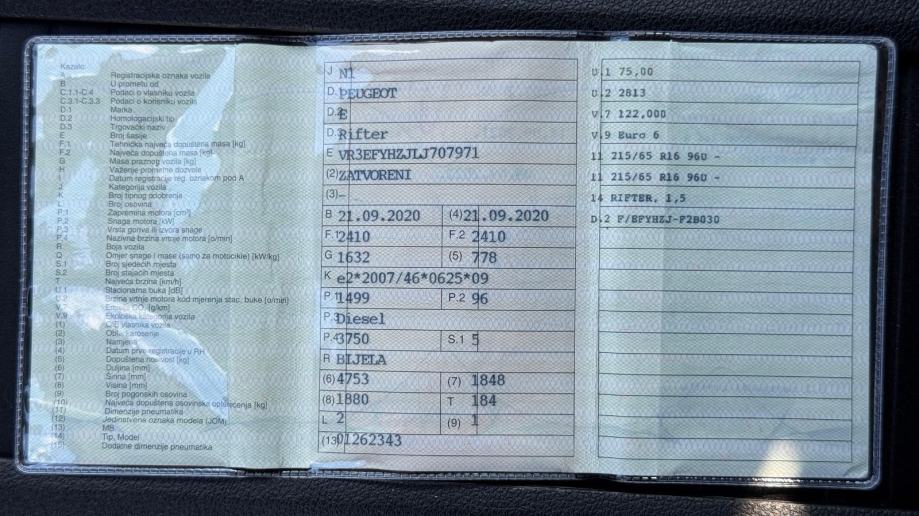 Kazalo:
A Registracijska oznaka vozila
B U prometu od
C.1.1-C.4 Podaci o vlasniku vozila
C.3.1-C.3.3 Podaci o korisniku vozila
D.1 Marka
D.2 Homologacijski tip
D.3 Trgovački naziv
E Broj šasije
F.1 Tehnička najveća dopuštena masa [kg]
F.2 Najveća dopuštena masa [kg]
G Masa praznog vozila [kg]
H Važenje prometne dozvole
I Datum registracije reg. oznakom pod A
J Kategorija vozila
K Broj tipnog odobrenja
L Broj osovina
P.1 Zapremina motora [cm³]
P.2 Snaga motora [kW]
P.3 Vrsta goriva ili izvora snage
P.4 Nazivna brzina vrtnje motora [o/min]
R Boja vozila
Q Omjer snage i mase (samo za motocikle) [kW/kg]
S.1 Broj sjedećih mjesta
S.2 Broj stajaćih mjesta
T Najveća brzina [km/h]
U.1 Stacionarna buka [dB]
U.2 Brzina vrtnje motora kod mjerenja stac. buke [o/min]
[g/km]
V.9 Ekološka kategorija vozila
(1) vlasnika vozila
(2)
(3)
(4) Datum prve registracije u RH
(5) Dopuštena nosivost [kg]
(6) Duljina [mm]
(7) Širina [mm]
(8) Visina [mm]
(9) Broj pogonskih osovina
(10) Najveća dopuštena osovinska opterećenja [kg]
(11) Dimenzije pneumatika
(12) Jedinstvena oznaka modela (JOM)
(13) MB
(14) Tip, Model
Dodatne dimenzije pneumatika
J N1
D. PEUGEOT
D.2 E
D. Rifter
E VR3EFYHZJLJ707971
(2) ZATVORENI
(3) -
B 21.09.2020 (4) 21.09.2020
F.1 2410 F.2 2410
G 1632 (5) 778
K e2*2007/46*0625*09
P.1 1499 P.2 96
P.3 Diesel
P.4 3750 S.1 5
R BIJELA
(6) 4753 (7) 1848
(8) 1880 T 184
L 2 (9) 1
(13) 01262343
U.1 75,00
U.2 2813
V.7 122,000
V.9 Euro 6
11 215/65 R16 96U -
11 215/65 R16 96U -
14 RIFTER, 1,5
D.2 F/EFYHZJ-F2B030